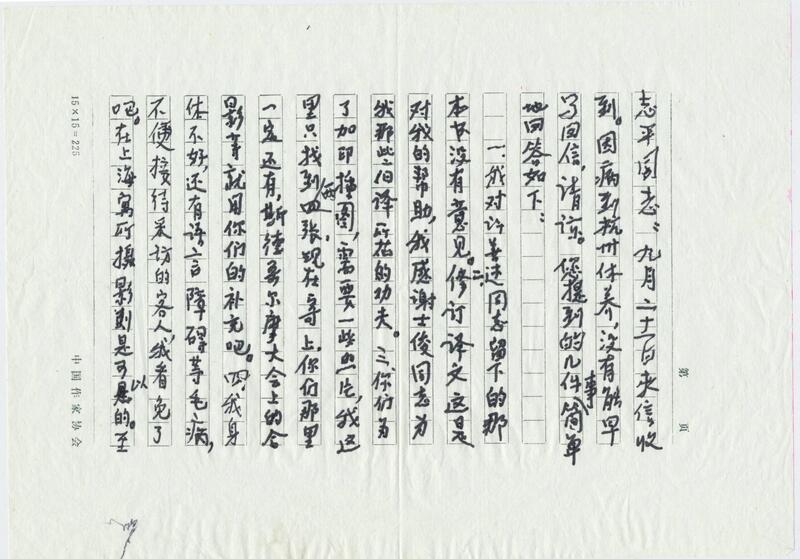 第　页
志平同志：九月二十一日来信收
到。因病到杭州休养，没有能早
写回信，请谅。您提到的几件事简单
地回答如下：
一、我对许善述同志留下的那
本书没有意见。二、修订译文这是
对我的帮助，我感谢士俊同志为
我那些旧译所花的功夫。三、你们为
了加印插图，需要一些照片，我这
里只找到四张，现在寄上，你们那里
一定还有，斯德哥尔摩大会上的合
影等就用你们的补充吧。四、我身
体不好，还有语言障碍等毛病，
不便接待采访的客人，我看免了
吧。在上海寓所摄影则是可以的。至
中国作家协会
15×15=225